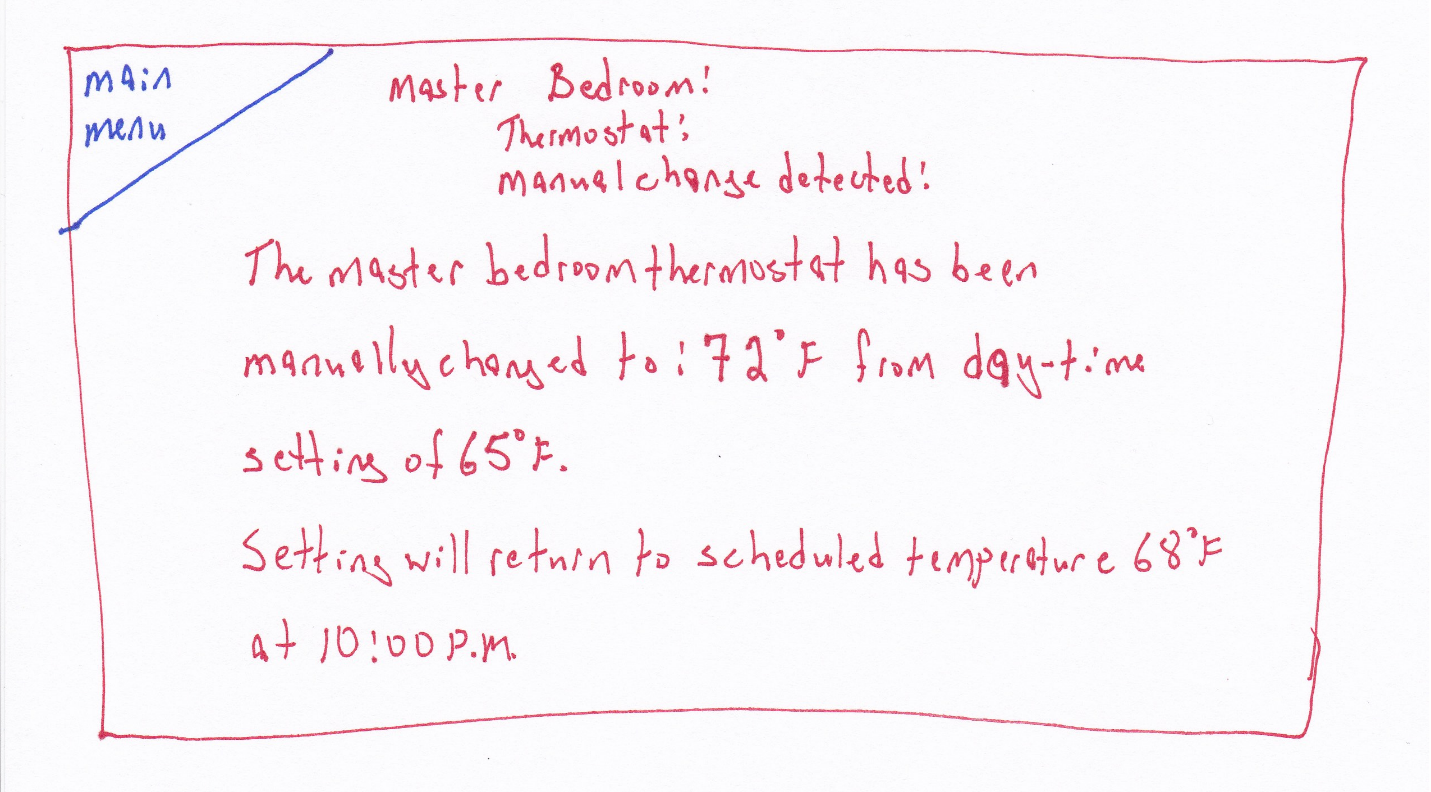 main
menu
Master Bedroom:
Thermostat:
manual change detected!
The master bedroom thermostat has been
manually changed to: 72°F from day-time
setting of 65°F.
Setting will return to scheduled temperature 68°F
at 10:00 P.M.